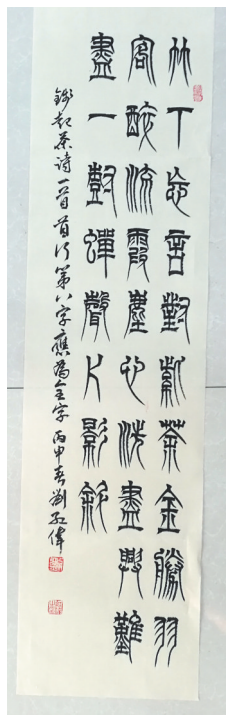 竹下忘言對紫茶金勝羽
客醉流霞塵心洗盡興難
盡一樹蟬聲片影斜
錢起茶詩一首首行第八字應為全字丙申春劉偉